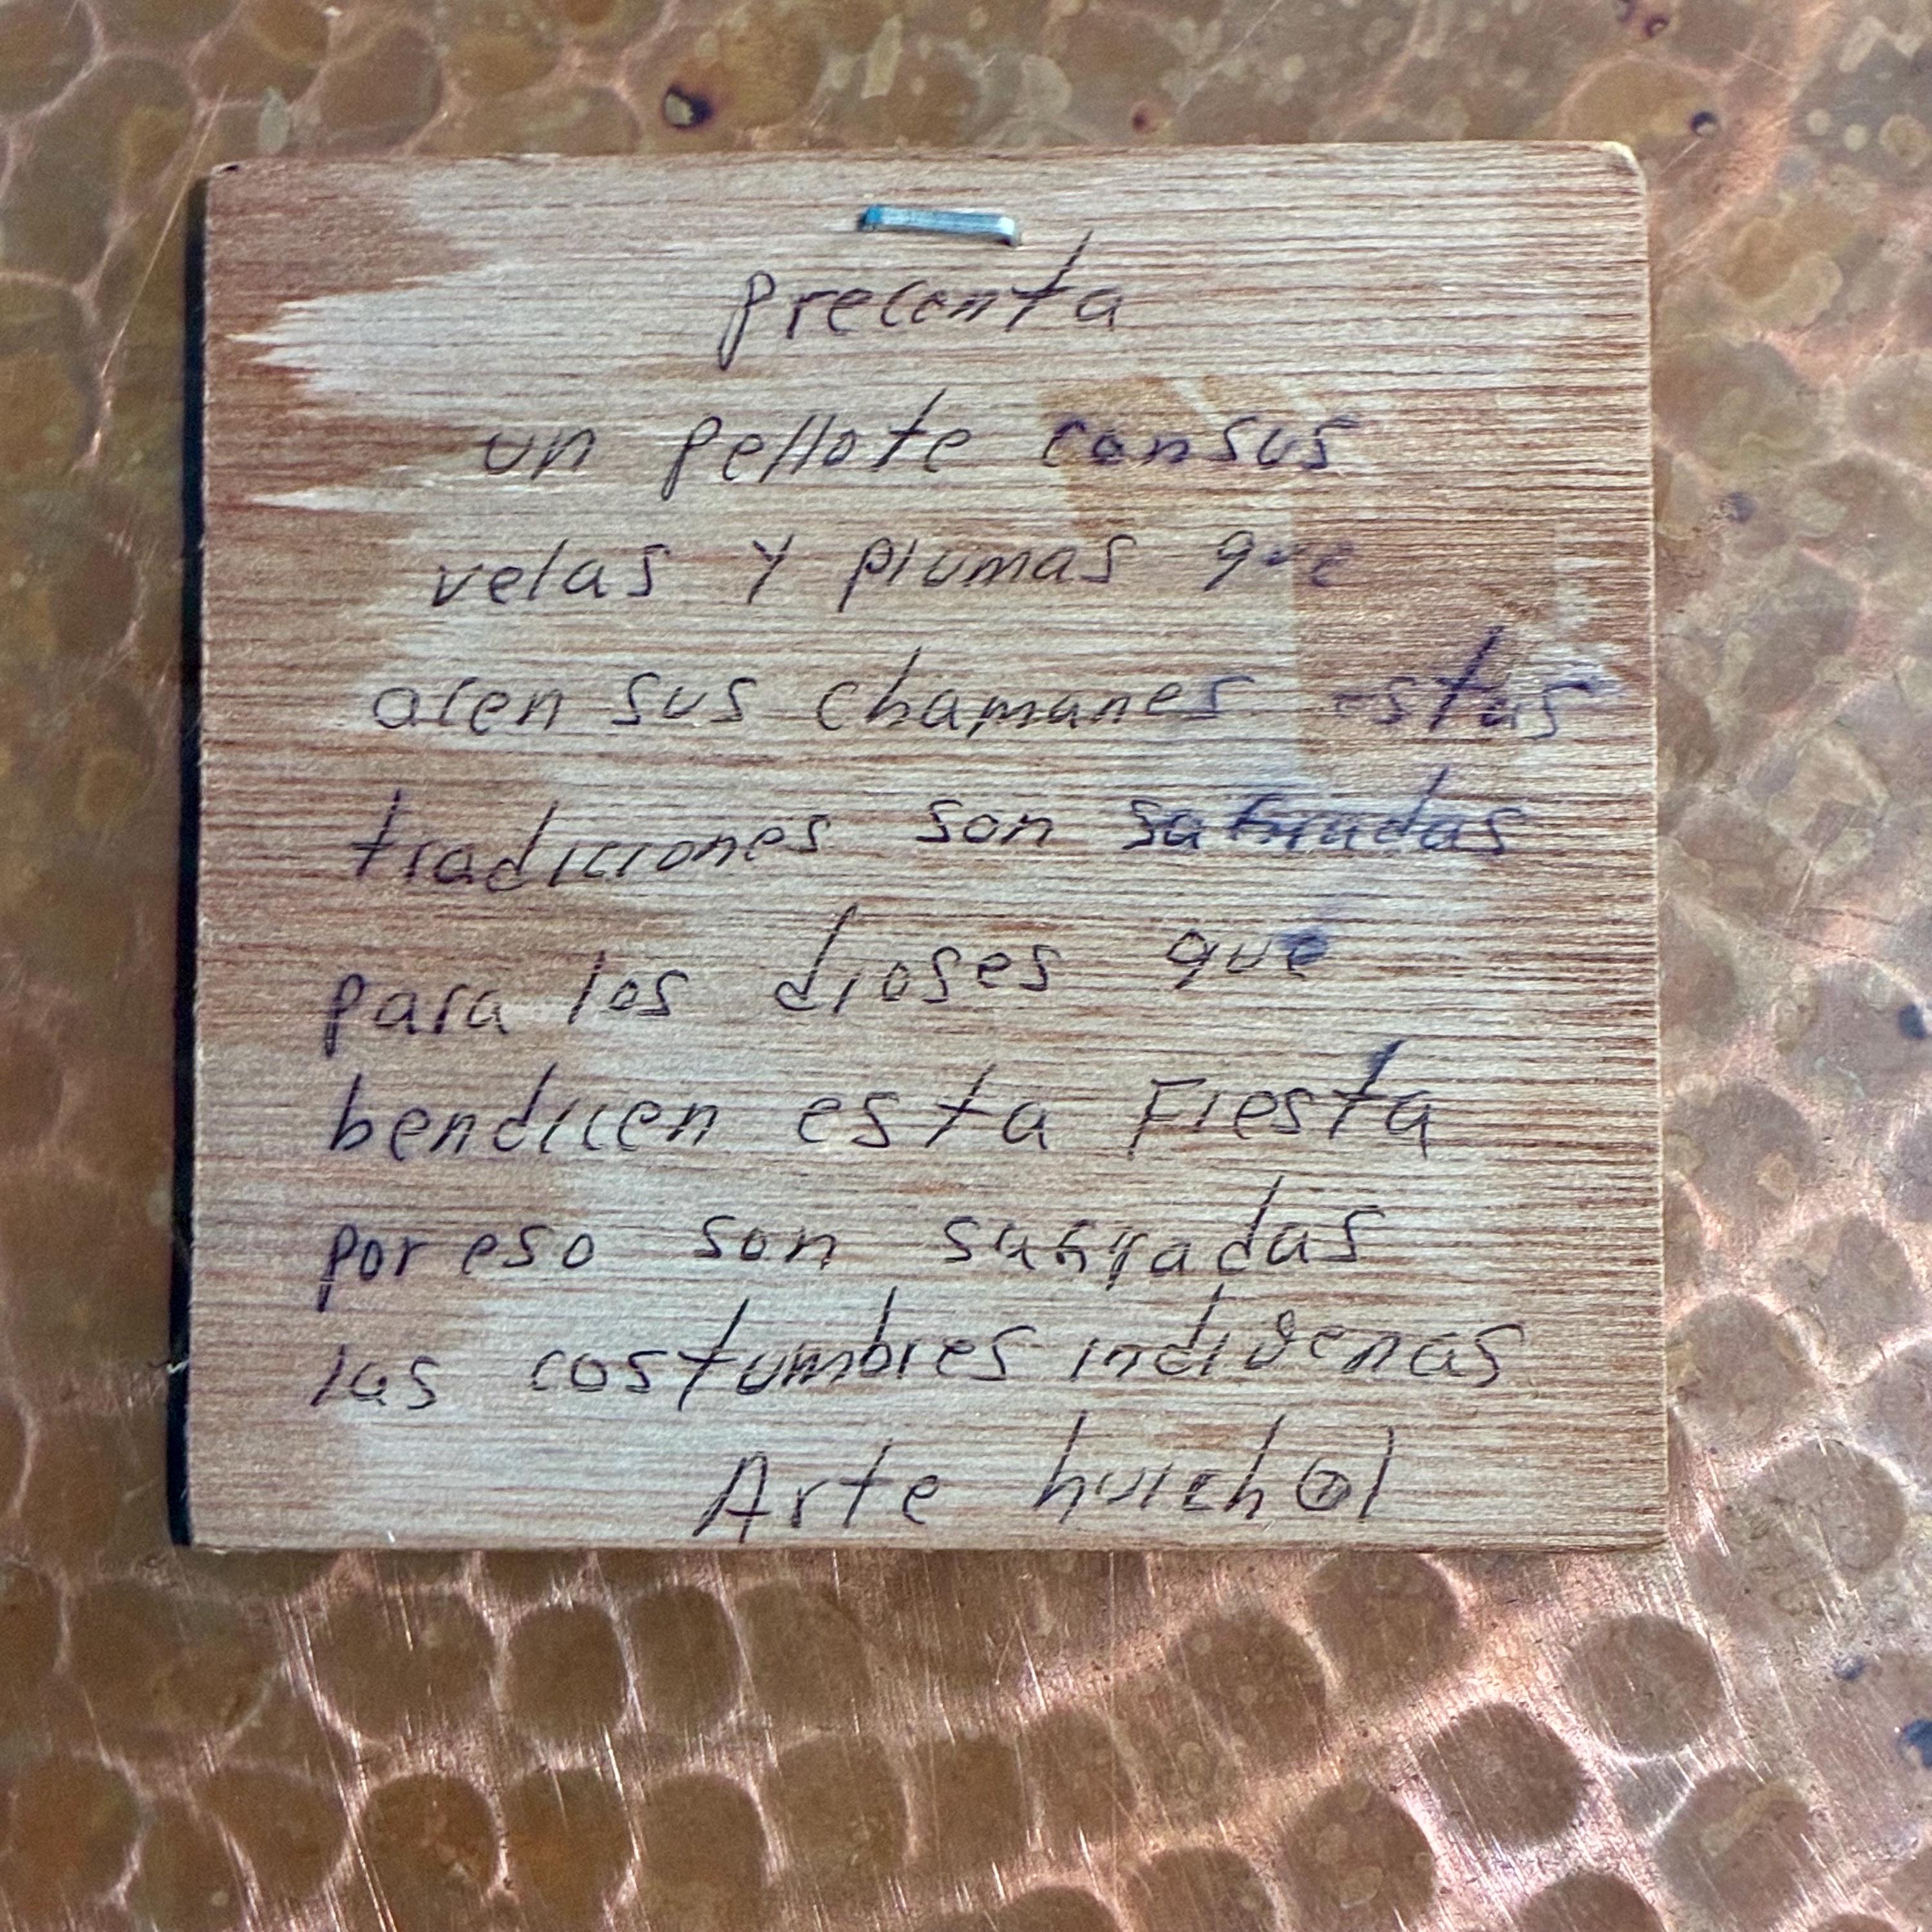 precenta
un pellote consus
velas y plumas que
acen sus chamanes estas
tradiciones son sagradas
para los dioses que
bendicen esta Fiesta
por eso son sagradas
las costumbres indigenas
Arte huichol